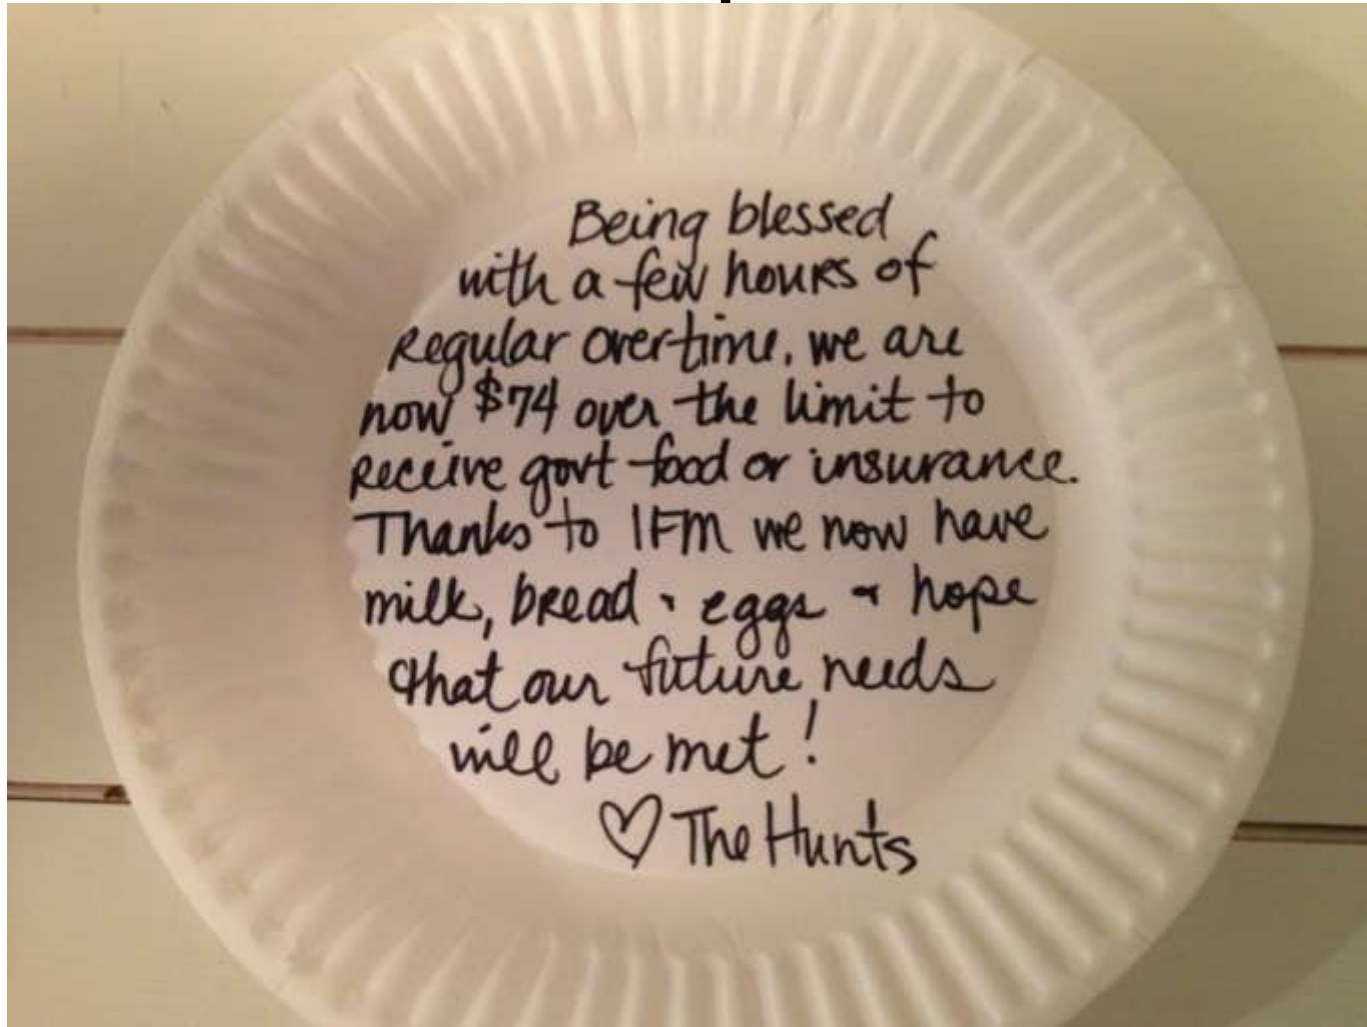 Being blessed
with a few hours of
regular overtime, we are
now $74 over the limit to
receive govt food or insurance.
Thanks to IFM we now have
milk, bread + eggs + hope
that our future needs
will be met!
♡ The Hunts